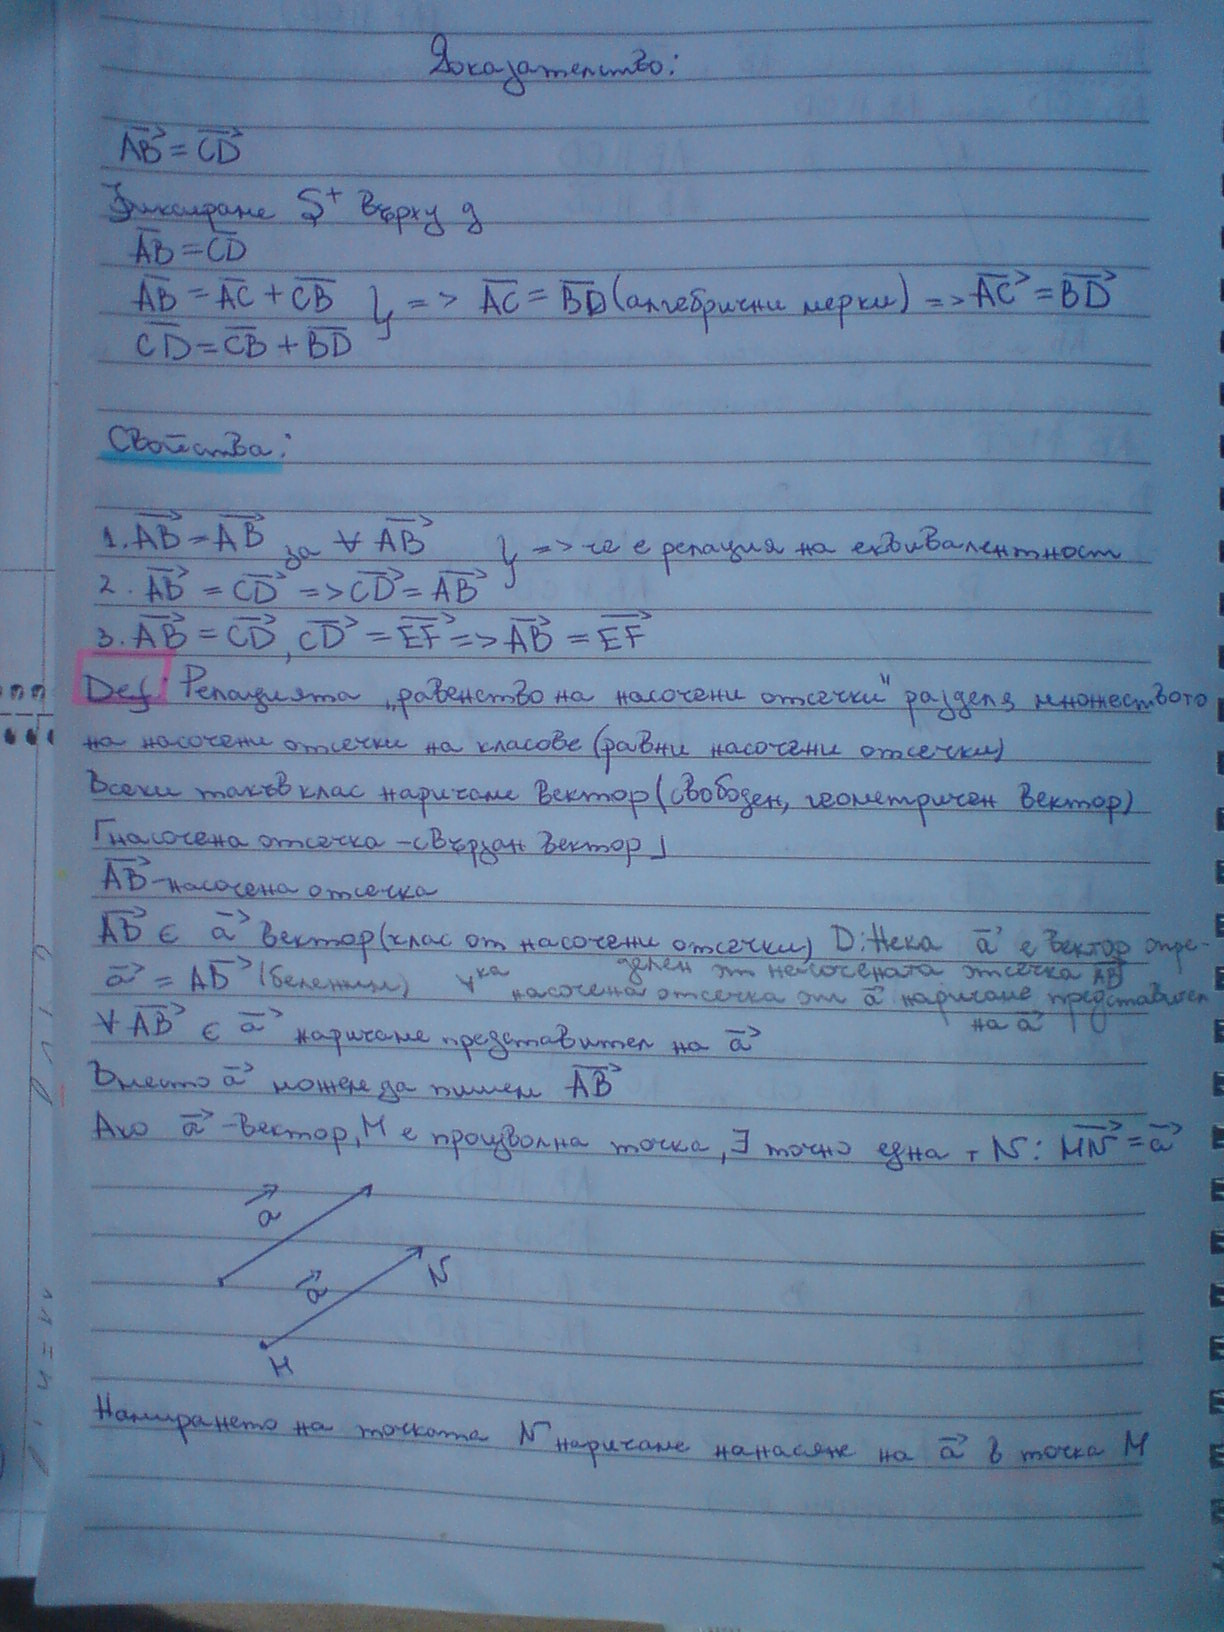 Доказателство:
AB→ = CD→
Фиксираме S⁺ върху g
A̅B̅ = C̅D̅
A̅B̅ = A̅C̅ + C̅B̅ } => A̅C̅ = B̅D̅ (алгебрични мерки) => AC→ = BD→
C̅D̅ = C̅B̅ + B̅D̅
Свойства:
1. AB→ = AB→ за ∀ AB→ } => че е релация на еквивалентност
2. AB→ = CD→ => CD→ = AB→
3. AB→ = CD→, CD→ = EF→ => AB→ = EF→
Def: Релацията „равенство на насочени отсечки" разделя множеството
на насочени отсечки на класове (равни насочени отсечки)
Всеки такъв клас наричаме вектор (свободен, геометричен вектор)
⌈насочена отсечка - свързан вектор⌋
AB→ - насочена отсечка
AB→ ∈ a→ вектор (клас от насочени отсечки) D: Нека a→ е вектор опре-
делен от насочената отсечка AB→
a→ = AB→ (бележим) ∀ка насочена отсечка от a→ наричаме представител
на a→
∀ AB→ ∈ a→ наричаме представител на a→
Вместо a→ можем да пишем AB→
Ако a→ - вектор, M е произволна точка, ∃ точно една т N: MN→ = a→
a→
a→
N
M
Намирането на точката N наричаме нанасяне на a→ в точка M